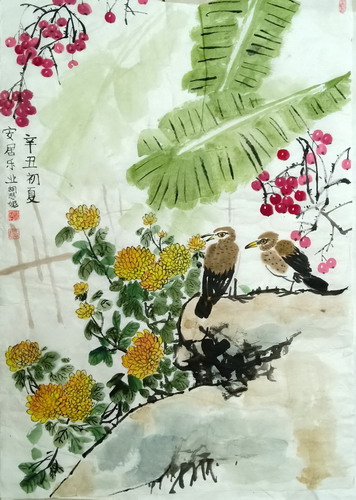 辛丑初夏
安居乐业